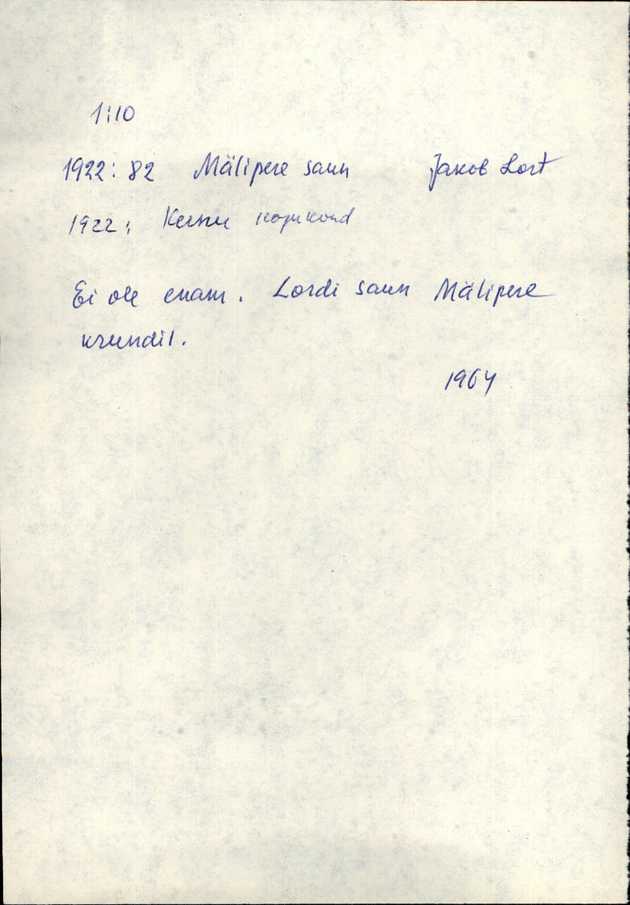 1:10
1922: 82 Mälipere saun Jakob Lort
1922: Kernu kogukond
Ei ole enam. Lordi saun Mälipere
krundil.
1964